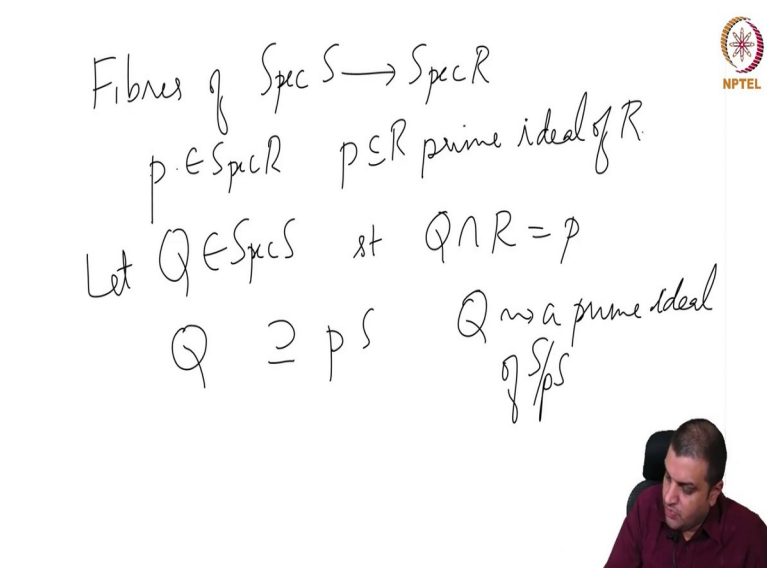 Fibres of Spec S → Spec R
p ∈ Spec R p ⊆ R prime ideal of R.
Let Q ∈ Spec S st Q ∩ R = p
Q ⊇ pS Q ⇝ a prime ideal
of S/pS
NPTEL